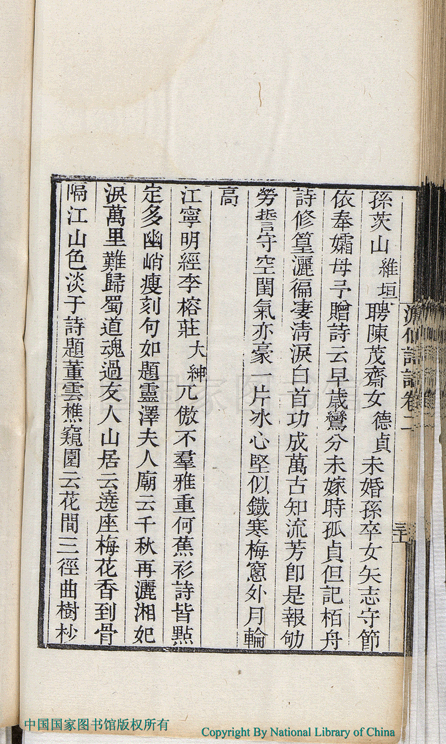 孫茨山維垣聘陳茂齋女德貞未婚孫卒女矢志守節
依奉孀母予贈詩云早歲鸞分未嫁時孤貞但記栢舟
詩修篁灑徧淒淸淚白首功成萬古知流芳卽是報劬
勞誓守空閨氣亦豪一片冰心堅似鐵寒梅窻外月輪
高
江寧明經李榕莊大紳兀傲不羣雅重何蕉衫詩皆點
定多幽峭瘦刻句如題靈澤夫人廟云千秋再灑湘妃
淚萬里難歸蜀道魂過友人山居云遶座梅花香到骨
隔江山色淡于詩題董雲樵窺園云花間三徑曲樹杪
詩話卷二
中国国家图书馆版权所有
Copyright By National Library of China